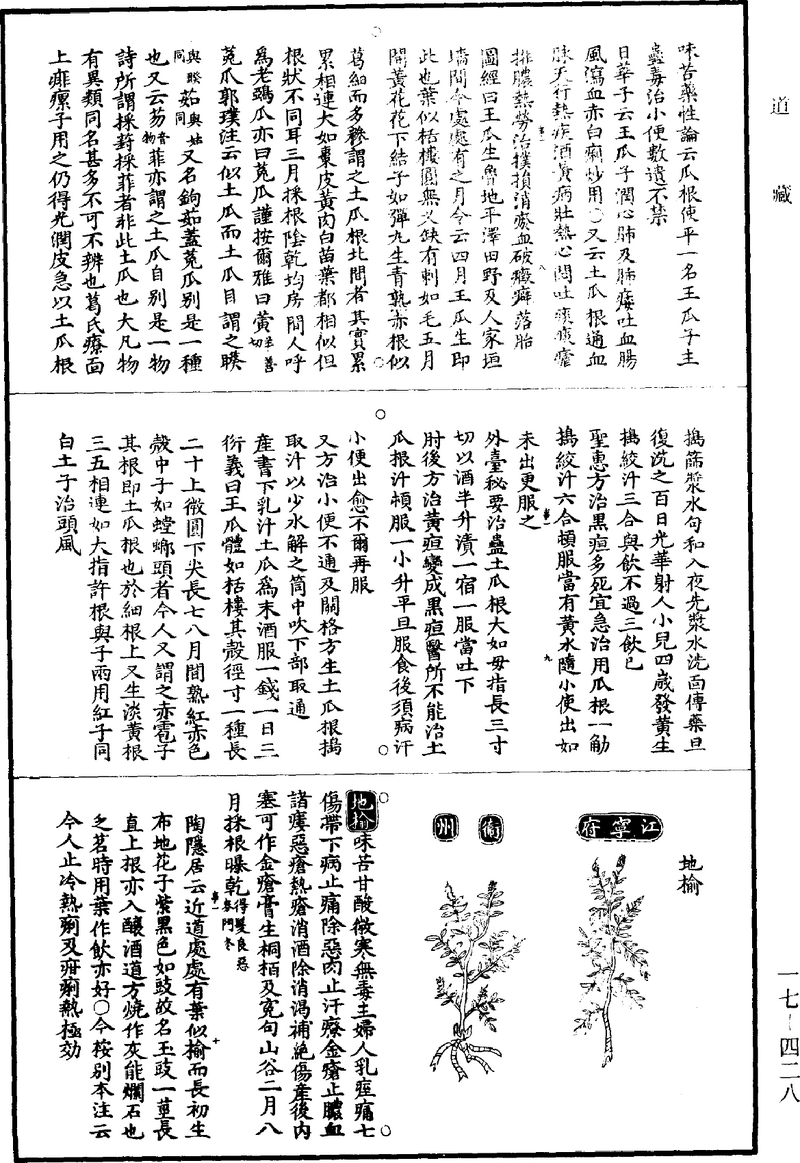 道藏
味苦藥性論云瓜根使平一名王瓜子主
蠱毒治小便數遺不禁
日華子云王瓜子潤心肺及肺痿吐血腸
風瀉血赤白痢炒用〇又云土瓜根通血
脉天行熱疾酒黃病壯熱心悶吐痰痰瘧
排膿熱勞治撲損消瘀血破癥癖落胎
圖經曰王瓜生魯地平澤田野及人家垣
墻間今處處有之月令云四月王瓜生即
此也葉似栝樓圓無义缺有刺如毛五月
開黃花花下結子如彈丸生青熟赤根似
葛細而多糝謂之土瓜根北間者其實累
累相連大如棗皮黃肉白苗葉都相似但
根狀不同耳三月採根陰乾均房間人呼
為老鵶瓜亦曰菟瓜謹按爾雅曰黃辛善切
菟瓜郭璞注云似土瓜而土瓜自謂之睽
與睽同茹與姑同又名鉤茹蓋菟瓜别是一種
也又云芴音物菲亦謂之土瓜自别是一物
詩所謂採葑採菲者非此土瓜也大凡物
有異類同名甚多不可不辨也葛氏療面
上痱㿔子用之仍得光潤皮急以土瓜根
搗篩漿水勻和入夜先漿水洗面傅藥旦
復洗之百日光華射人小兒四歲發黃生
搗絞汁三合與飲不過三飲已
聖惠方治黑疸多死宜急治用瓜根一觔
搗絞汁六合頓服當有黃水隨小便出如
未出更服之
外臺秘要治蠱土瓜根大如母指長三寸
切以酒半升漬一宿一服當吐下
肘後方治黃疸變成黑疸醫所不能治土
瓜根汁頓服一小升平旦服食後須病汗
小便出愈不爾再服
又方治小便不通及關格方生土瓜根搗
取汁以少水解之筒中吹下部取通
產書下乳汁土瓜為末酒服一錢一日三
衍義曰王瓜體如栝樓其殼徑寸一種長
二寸上微圓下尖長七八月間熟紅赤色
殼中子如螳螂頭者今人又謂之赤雹子
其根即土瓜根也於細根上又生淡黃根
三五相連如大指許根與子兩用紅子同
白土子治頭風
地榆
江寧府
衛州
地榆味苦甘酸微寒無毒主婦人乳痓痛七
傷帶下病止痛除惡肉止汗療金瘡止膿血
諸瘻惡瘡熱瘡消酒除消渴補絶傷產後內
塞可作金瘡膏生桐栢及寃句山谷二月八
月採根曝乾得髮良惡麥門冬
陶隱居云近道處處有葉似榆而長初生
布地花子紫黑色如豉故名玉豉一莖長
直上根亦入釀酒道方燒作灰能爛石也
乏茗時用葉作飲亦好〇今按别本注云
今人止冷熱痢及疳痢熱極効
一七—四二八